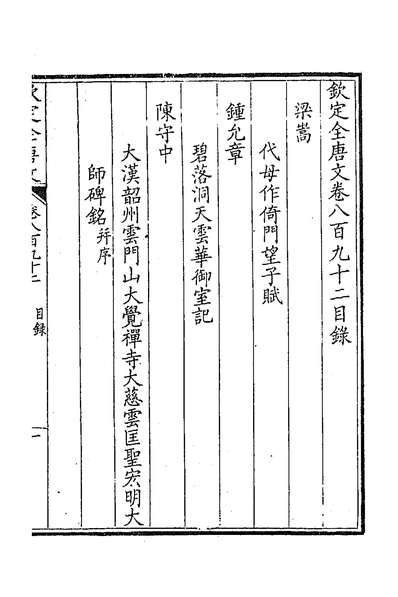 欽定全唐文卷八百九十二目錄
梁嵩
代母作倚門望子賦
鍾允章
碧落洞天雲華御室記
陳守中
大漢韶州雲門山大覺禪寺大慈雲匡聖宏明大
師碑銘并序
欽定全唐文
卷八百九十二
目錄
一